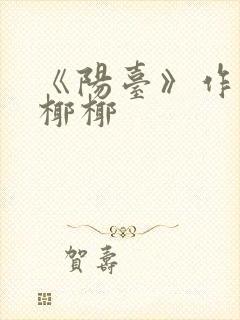 《陽臺》作
椰椰
賀壽